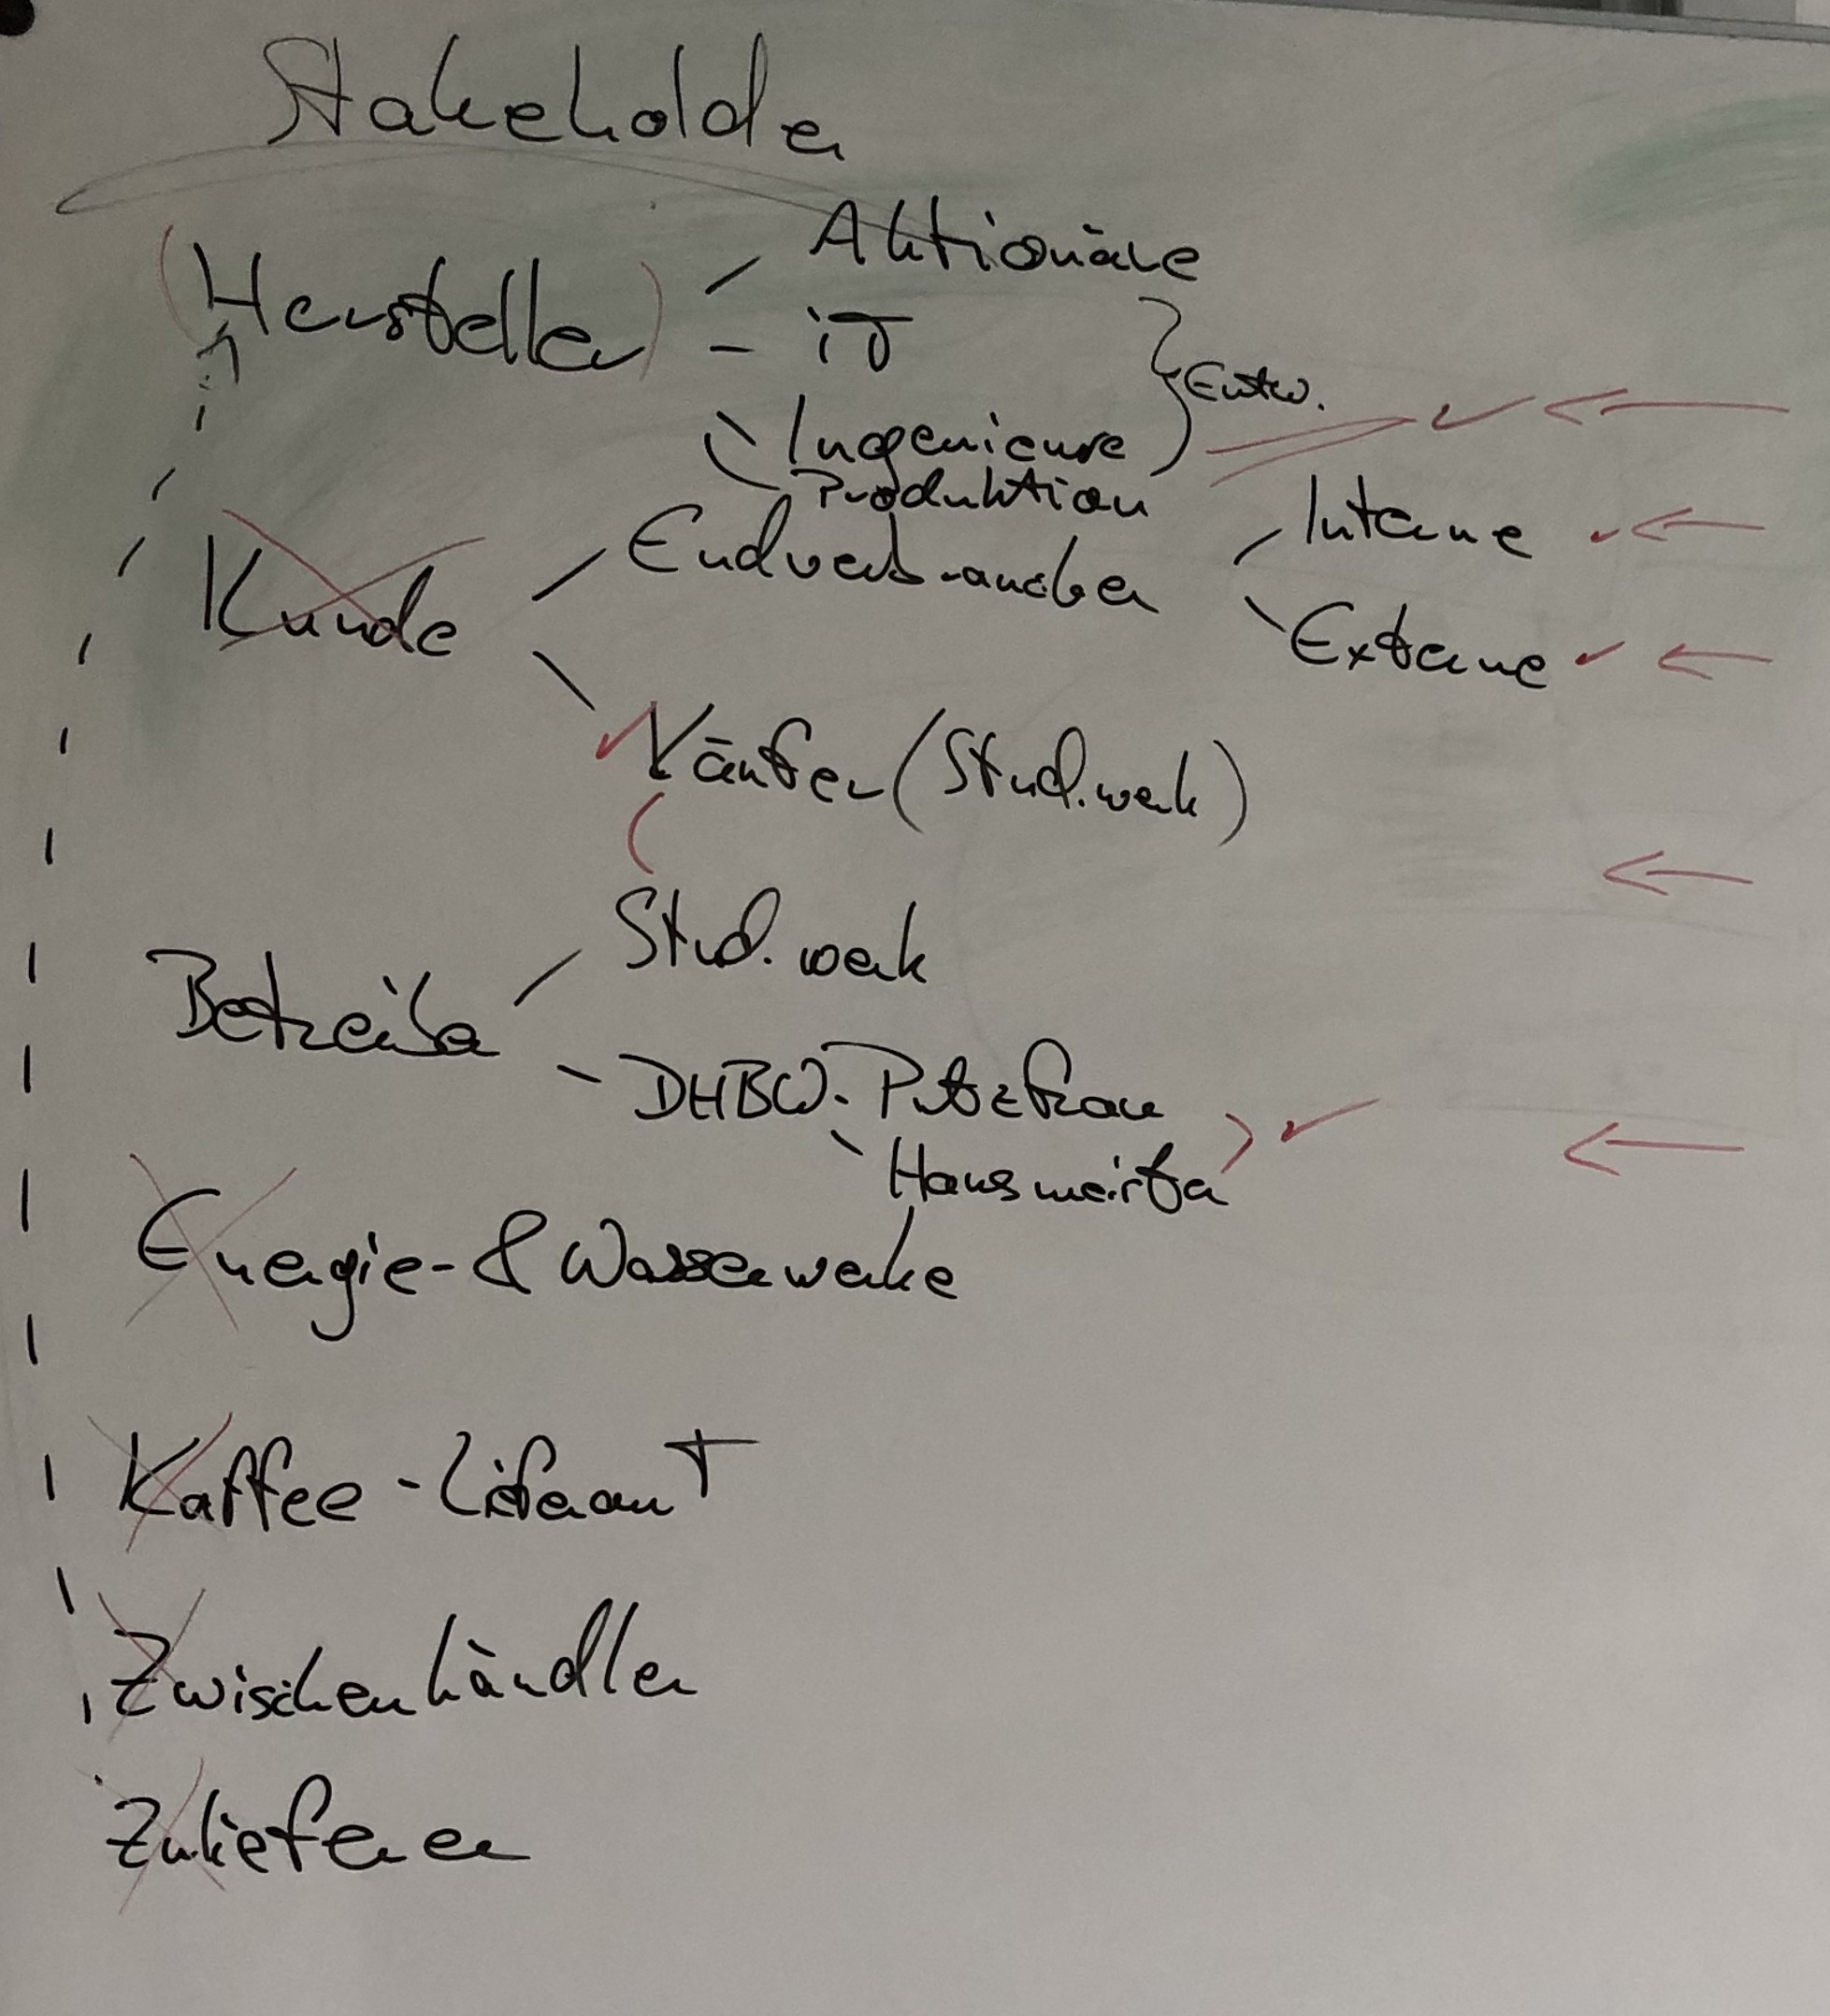 Stakeholder
Aktionäre
(Hersteller)
iT
Entw.
Ingenieure
Produktion
Interne
Endverbraucher
Kunde
Externe
Käufer (Stud.werk)
Stud.werk
Betreiber
DHBW - Putzfrau
Hausmeister
Energie- & Wasserwerke
Kaffee - Lieferant
Zwischenhändler
Zulieferer